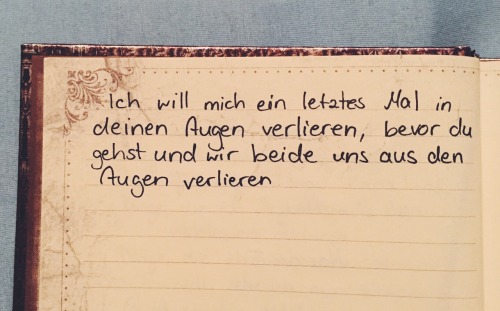 Ich will mich ein letztes Mal in
deinen Augen verlieren, bevor du
gehst und wir beide uns aus den
Augen verlieren